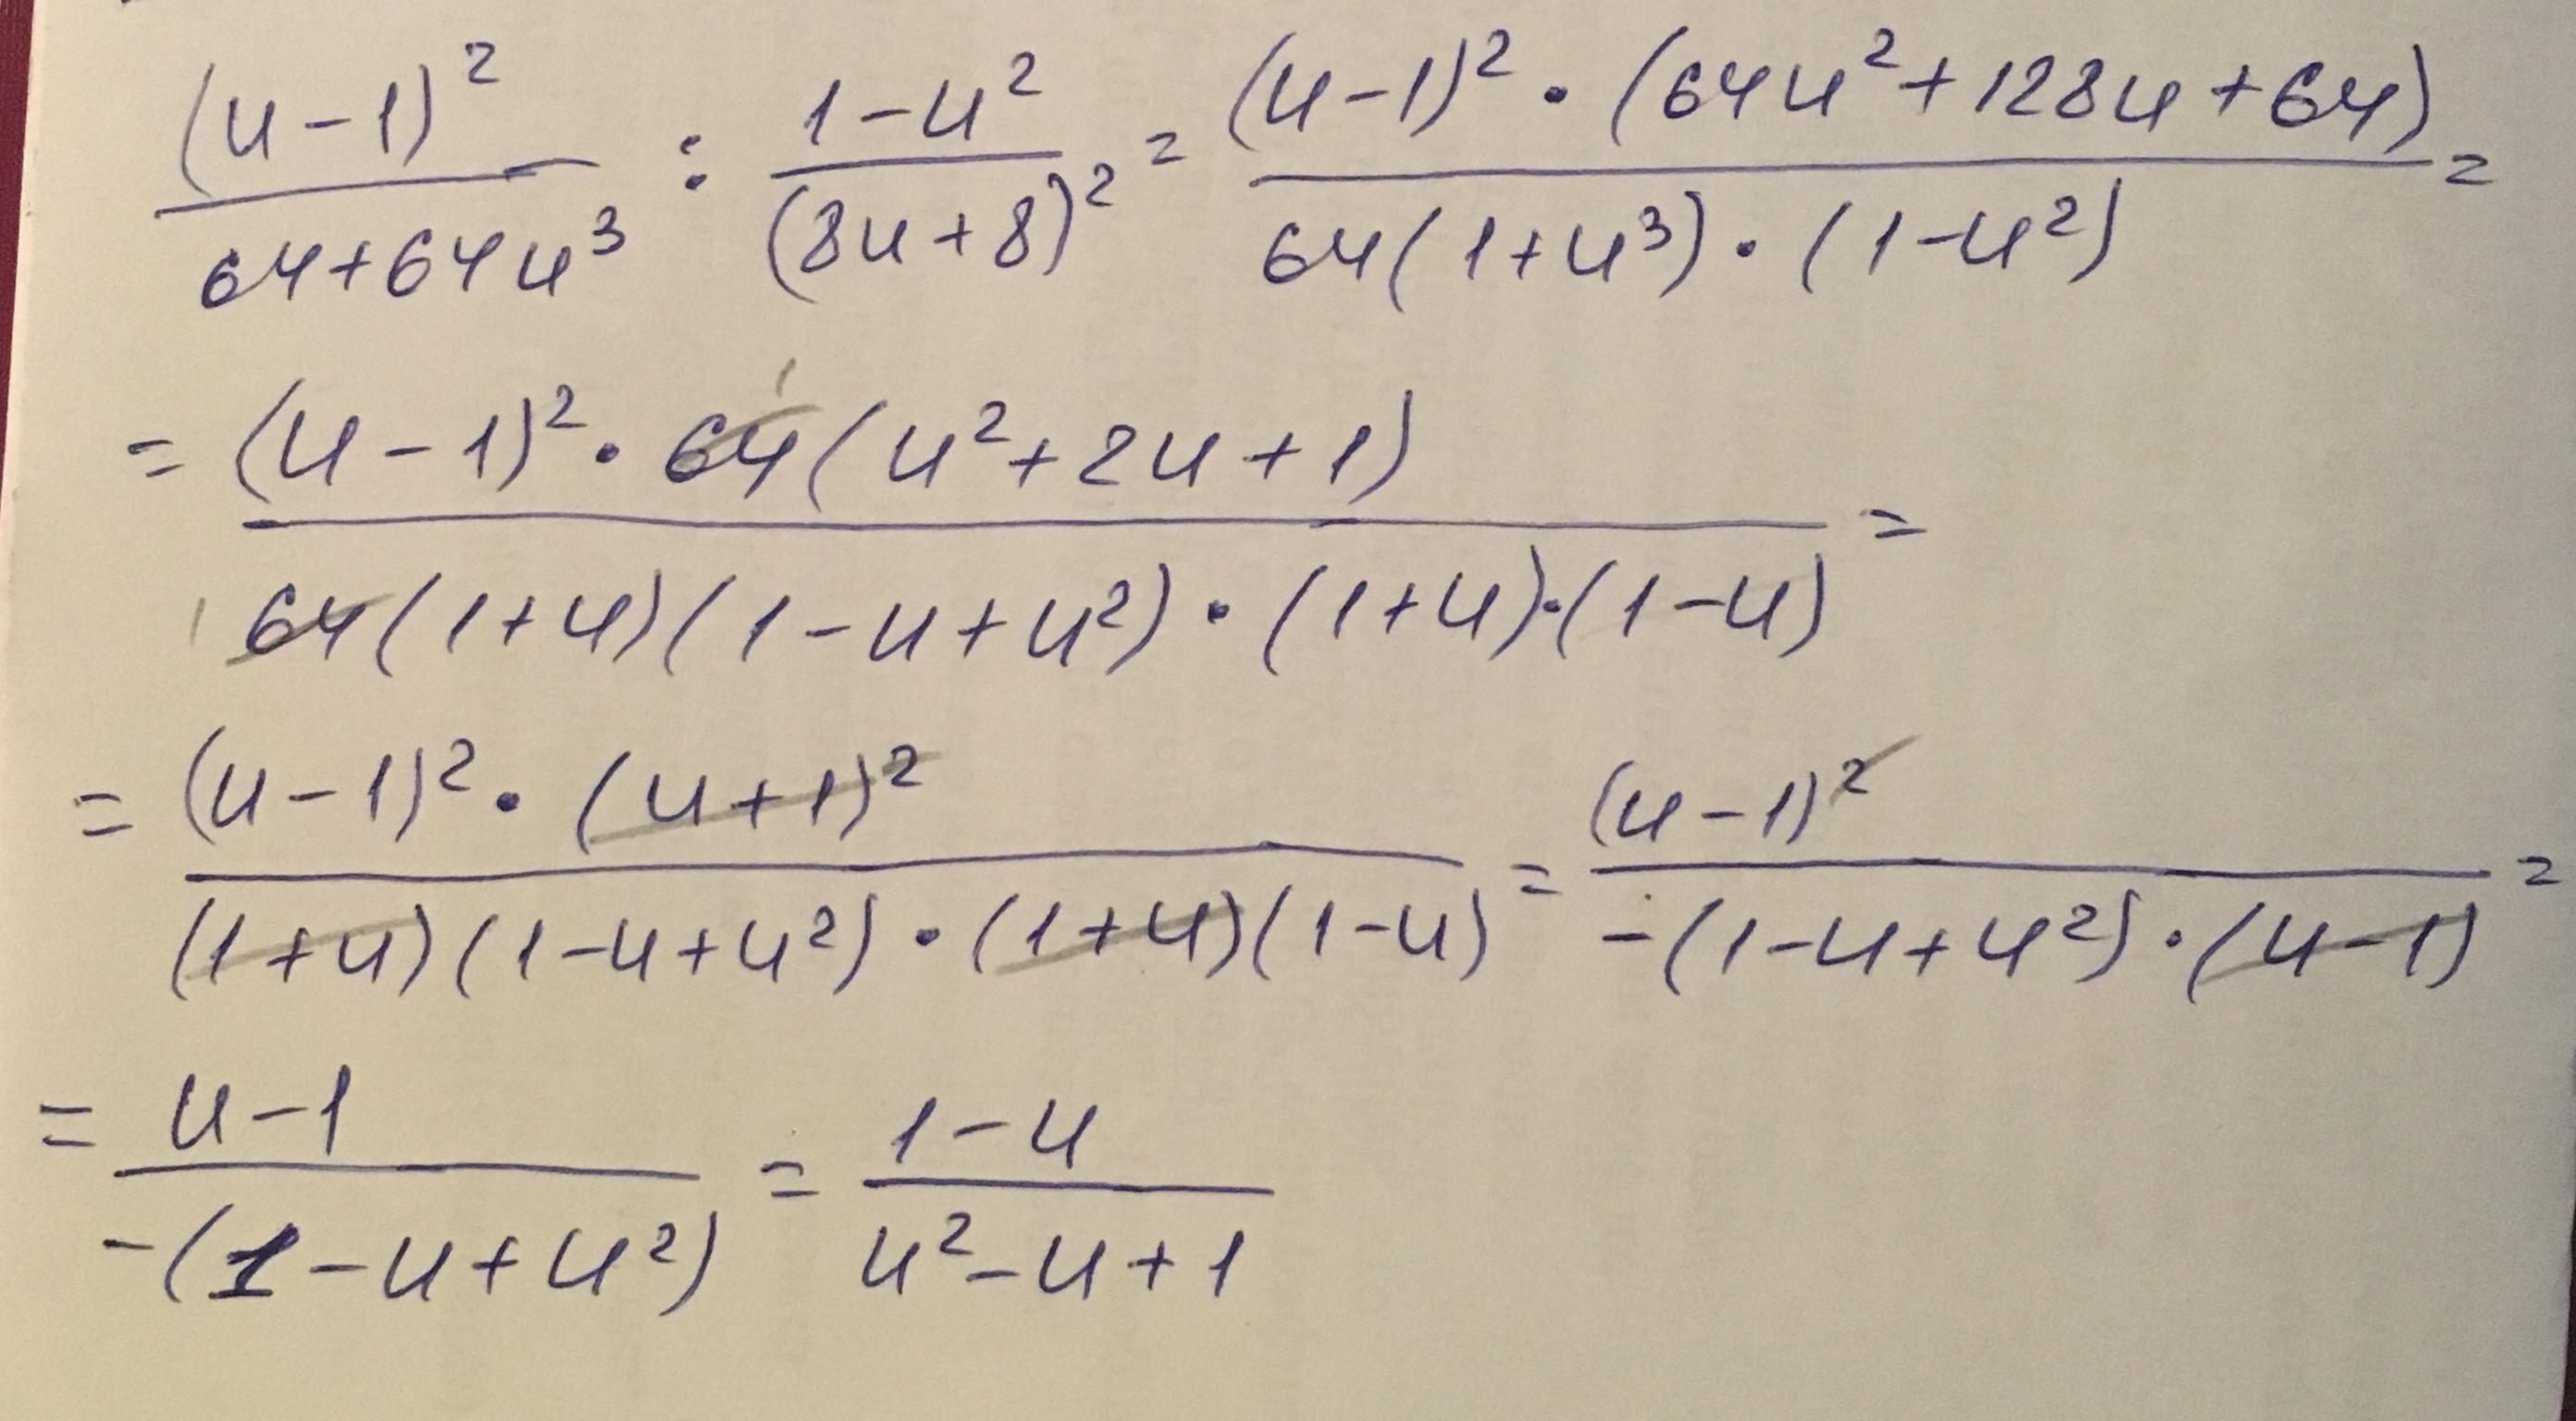 (u-1)²/(64+64u³) : (1-u²)/(8u+8)² = ((u-1)² · (64u²+128u+64))/(64(1+u³) · (1-u²)) =
= ((u-1)² · 64(u²+2u+1))/(64(1+u)(1-u+u²) · (1+u)·(1-u)) =
= ((u-1)² · (u+1)²)/((1+u)(1-u+u²) · (1+u)(1-u)) = (u-1)²/(-(1-u+u²)·(u-1)) =
= (u-1)/(-(1-u+u²)) = (1-u)/(u²-u+1)